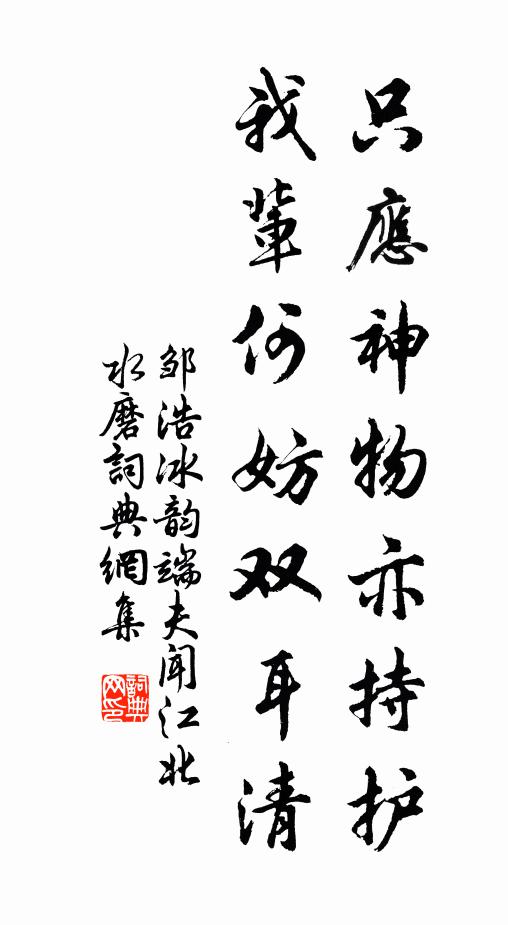 只應神物亦持护
我輩何妨双耳清
邹浩冰韵端夫闻江北
水磨詞典網集
詞典网印